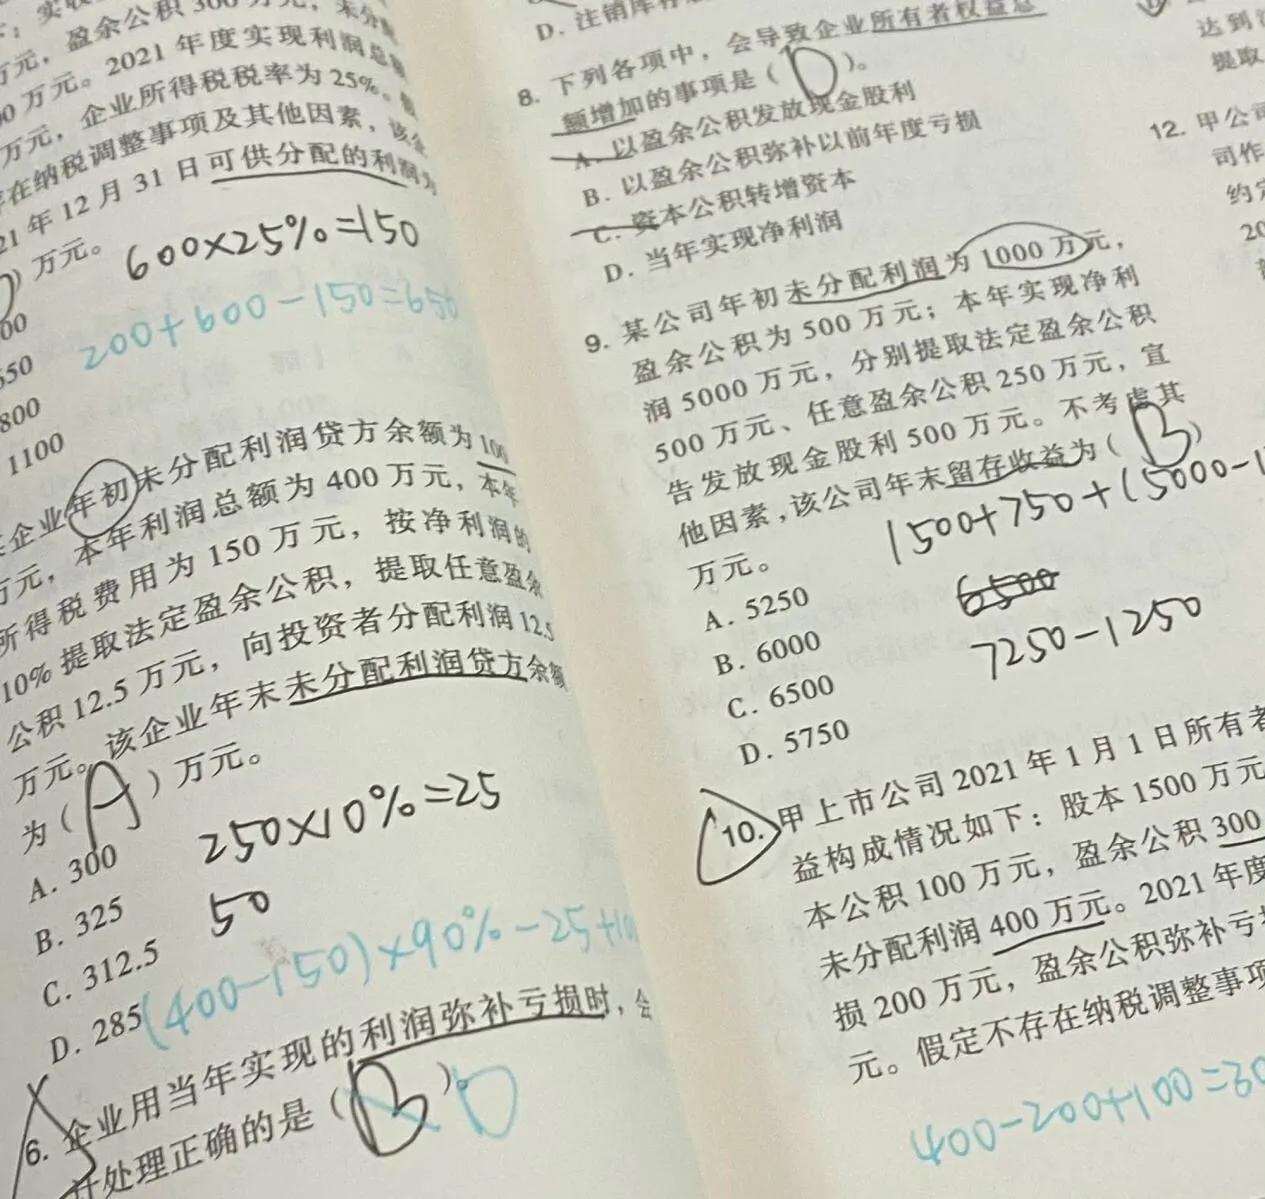 万元，盈余公积300万元，未分配
00万元。2021年度实现利润总额
万元，企业所得税税率为25%。
存在纳税调整事项及其他因素，该企
21年12月31日可供分配的利润为
）万元。
600×25%=150
200+600-150=650
00
650
800
1100
企业年初未分配利润贷方余额为100
万元，本年利润总额为400万元，本年
所得税费用为150万元，按净利润的
10%提取法定盈余公积，提取任意盈余
公积12.5万元，向投资者分配利润12.5
万元。该企业年末未分配利润贷方余额
为（A）万元。
A. 300
B. 325
C. 312.5
D. 285
250×10%=25
50
(400-150)×90%-25+10
6. 企业用当年实现的利润弥补亏损时，会
计处理正确的是（B）。D
D. 注销库存
8. 下列各项中，会导致企业所有者权益总
额增加的事项是（D）。
A. 以盈余公积发放现金股利
B. 以盈余公积弥补以前年度亏损
C. 资本公积转增资本
D. 当年实现净利润
9. 某公司年初未分配利润为1000万元，
盈余公积为500万元；本年实现净利
润5000万元，分别提取法定盈余公积
500万元、任意盈余公积250万元，宣
告发放现金股利500万元。不考虑其
他因素，该公司年末留存收益为（B）
万元。
1500+750+(5000-1
A. 5250
B. 6000
C. 6500
D. 5750
6500
7250-1250
10. 甲上市公司2021年1月1日所有者
益构成情况如下：股本1500万元
本公积100万元，盈余公积300
未分配利润400万元。2021年度
损200万元，盈余公积弥补亏
元。假定不存在纳税调整事项
400-200+100=30
达到
提取
12. 甲公司
司作
约定
20